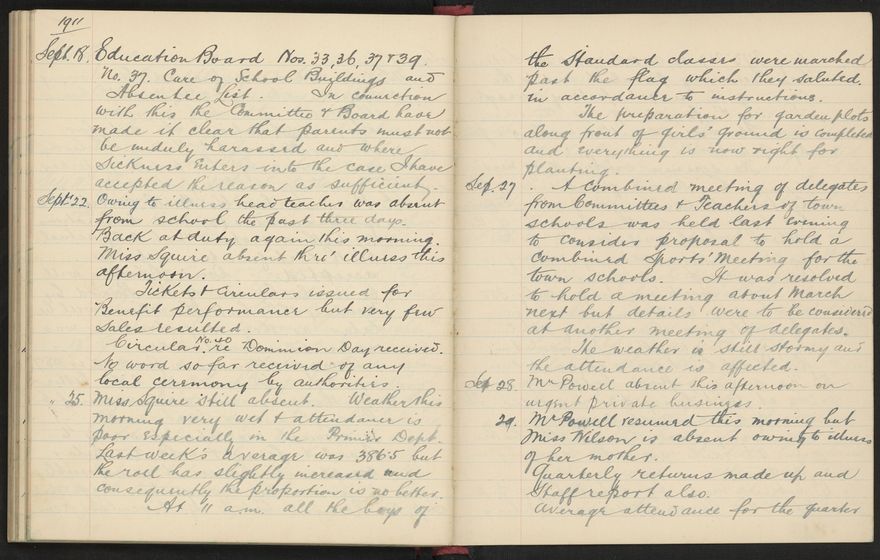 1911
Sept. 18. Education Board Nos. 33, 36, 37 & 39.
No. 37. Care of School Buildings and
Absentee List. In connection
with this the Committee & Board have
made it clear that parents must not
be unduly harassed and where
sickness enters into the case I have
accepted the reason as sufficient.
Sept. 22. Owing to illness head teacher was absent
from school the past three days.
Back at duty again this morning.
Miss Squire absent thro' illness this
afternoon.
Tickets & Circulars issued for
Benefit performance but very few
sales resulted.
Circular No. 40 re Dominion Day received.
No word so far received of any
local ceremony by authorities.
" 25. Miss Squire still absent. Weather this
morning very wet & attendance is
poor especially in the Primer Dept.
Last week's average was 386.5 but
the roll has slightly increased and
consequently the proportion is no better.
At 11 a.m. all the boys of
the Standard classes were marched
past the flag which they saluted.
in accordance to instructions.
The preparation for garden plots
along front of girls' ground is completed
and everything is now right for
planting.
Sep. 27. A combined meeting of delegates
from Committees & Teachers of town
schools was held last evening
to consider proposal to hold a
combined Sports' Meeting for the
town schools. It was resolved
to hold a meeting about March
next but details were to be considered
at another meeting of delegates.
The weather is still stormy and
the attendance is affected.
Sept 28. Mr Powell absent this afternoon on
urgent private business.
29. Mr Powell resumed this morning but
Miss Wilson is absent owing to illness
of her mother.
Quarterly returns made up and
Staff report also.
Average attendance for the quarter